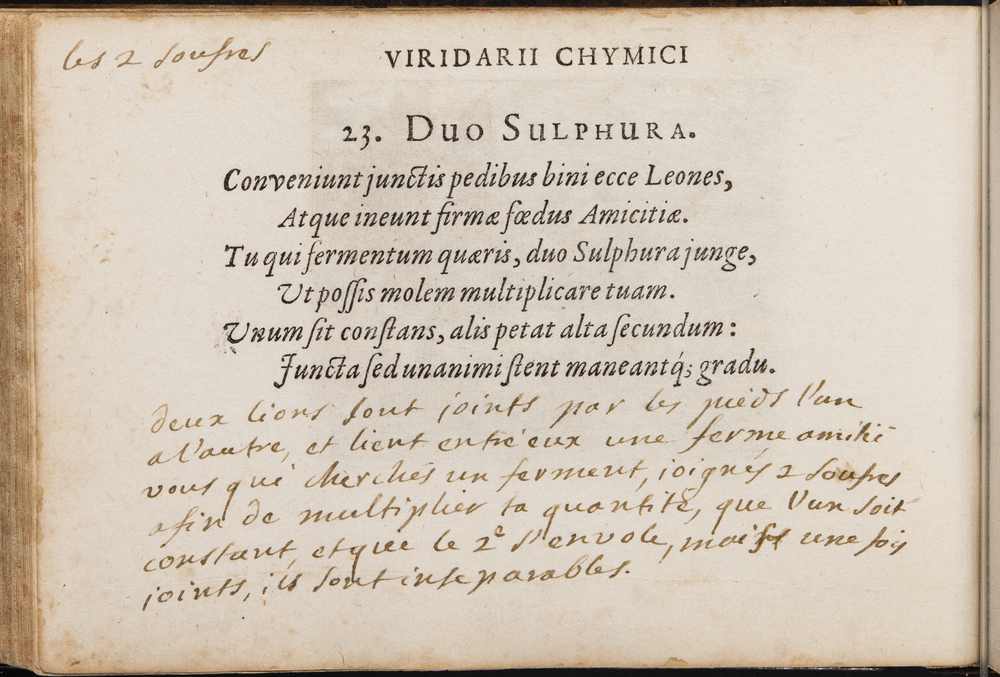 les 2 soufres
VIRIDARII CHYMICI
23. DUO SULPHURA.
Conveniunt junctis pedibus bini ecce Leones,
Atque ineunt firmæ fœdus Amicitiæ.
Tu qui fermentum quæris, duo Sulphura junge,
Ut possis molem multiplicare tuam.
Unum sit constans, alis petat alta secundum:
Juncta sed unanimi stent maneantq́; gradu.
deux lions sont joints par les pieds l'un
a l'autre, et lient entre eux une ferme amitié
vous qui cherchés un ferment, joignés 2 soufres
afin de multiplier ta quantité, que l'un soit
constant, et que le 2e s'envole, mais une fois
joints, ils sont inseparables.